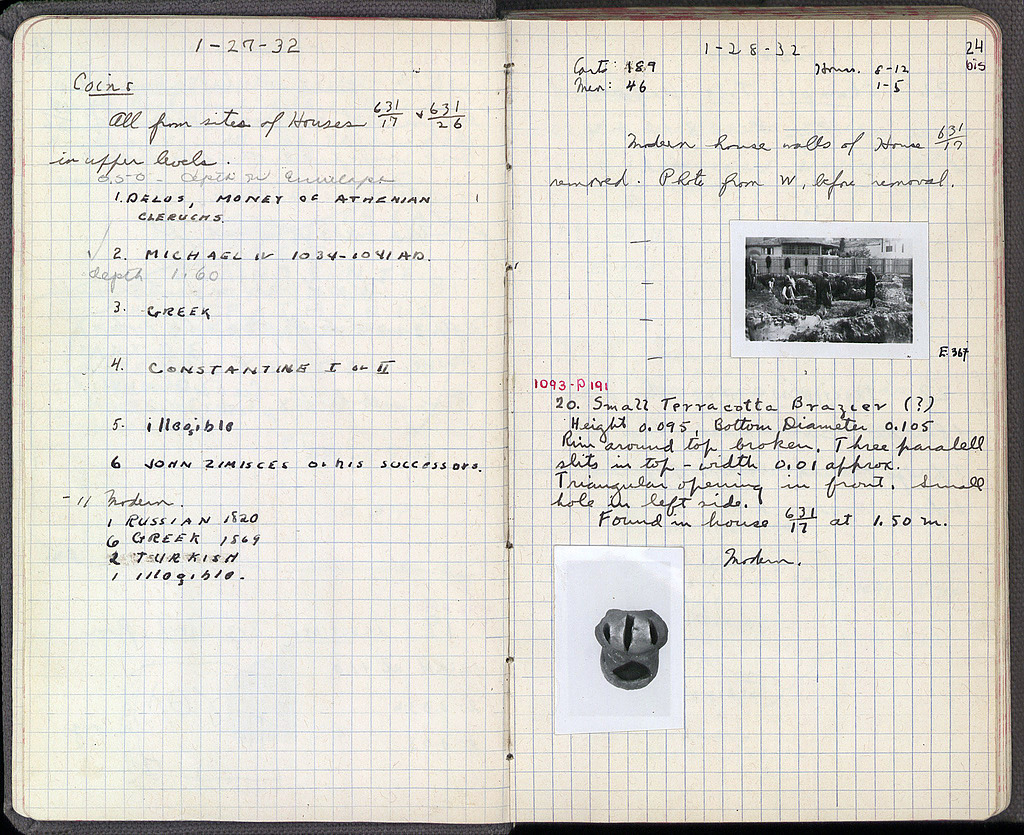 1-27-32
Coins
All from sites of Houses 631/17 + 631/26
in upper levels.
0.50 - depth on Envelope
1. DELOS, MONEY OF ATHENIAN 1
CLERUCHS.
✓ 2. MICHAEL IV 1034-1041 AD.
depth 1.60
3. GREEK
4. CONSTANTINE I or II
5. illegible
6 JOHN ZIMISCES or his SUCCESSORS.
-11 Modern.
1 RUSSIAN 1820
6 GREEK 1869
2 TURKISH
1 illegible.
1-28-32
24
bis
Carts: 189 Hours. 8-12
Men: 46 1-5
Modern house walls of House 631/17
removed. Photo from W, before removal.
E.367
1093-P 191
20. Small Terracotta Brazier (?)
Height 0.095, Bottom Diameter 0.105
Rim around top broken. Three paralell
slits in top - width 0.01 approx.
Triangular opening in front. Small
hole in left side.
Found in house 631/17 at 1.50 m.
Modern.